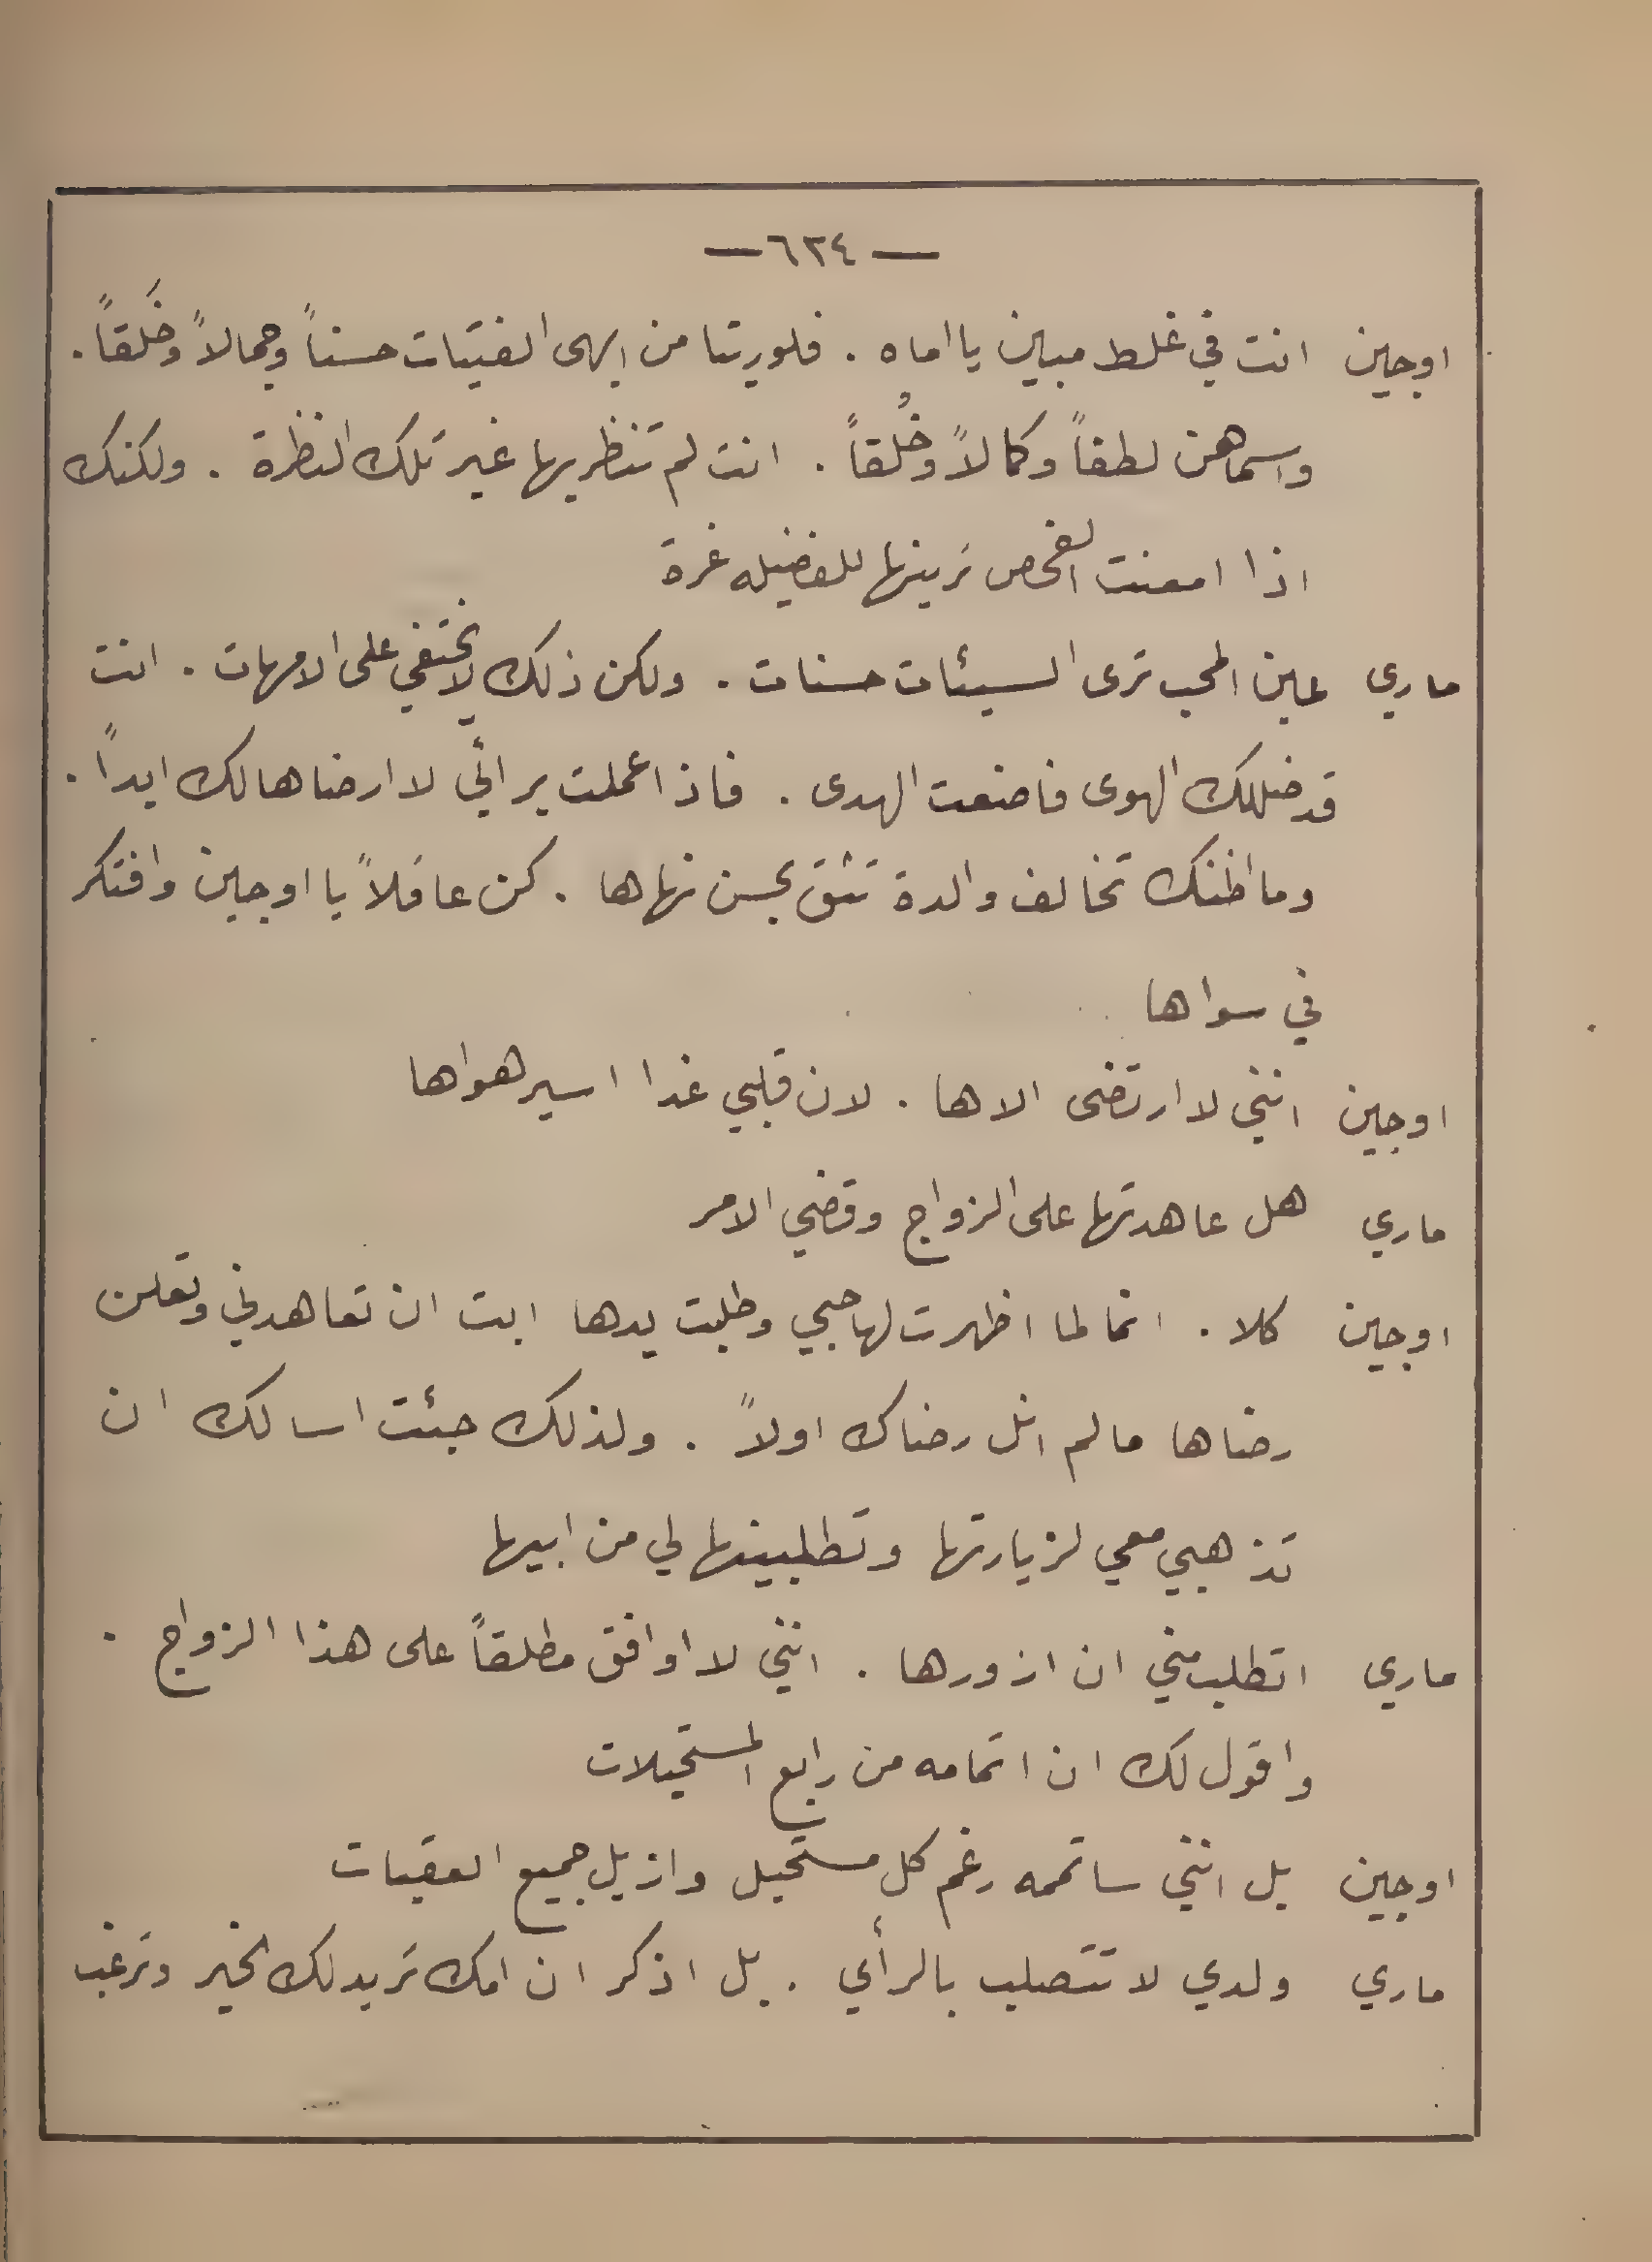 — ٦٢٤ —
اوجين انت في غلط مبين يا اماه . فلوريتا من ابهى الفتيات حسناً وجمالاً وخَلقاً .
واسماهن لطفاً وكمالاً وخُلقاً . انت لم تنظريها غير تلك النظرة . ولكنك
اذا امعنت الفحص ترينها للفضيله غرة
ماري عين المحب ترى السيئات حسنات . ولكن ذلك لا يختفي على الامهات . انت
قد ضللك الهوى فاضعت الهدى . فاذا عملت برأيي لا ارضاها لك ابداً .
وما اظنك تخالف والدة تثق بحسن نهاها . كن عاقلاً يا اوجين وافتكر
في سواها
اوجين انني لا ارتضى الاها . لان قلبي غدا اسير هواها
ماري هل عاهدتها على الزواج وقضي الامر
اوجين كلا . انما لما اظهرت لها حبي وطلبت يدها ابت ان تعاهدني وتعلن
رضاها ما لم انل رضاك اولاً . ولذلك جئت اسالك ان
تذهبي معي لزيارتها وتطلبينها لي من ابيها
ماري اتطلب مني ان ازورها . انني لا اوافق مطلقاً على هذا الزواج .
واقول لك ان اتمامه من رابع المستحيلات
اوجين بل انني ساتممه رغم كل مستحيل وازيل جميع العقبات
ماري ولدي لا تتصلب بالرأي . بل اذكر ان امك تريد لك الخير وترغب